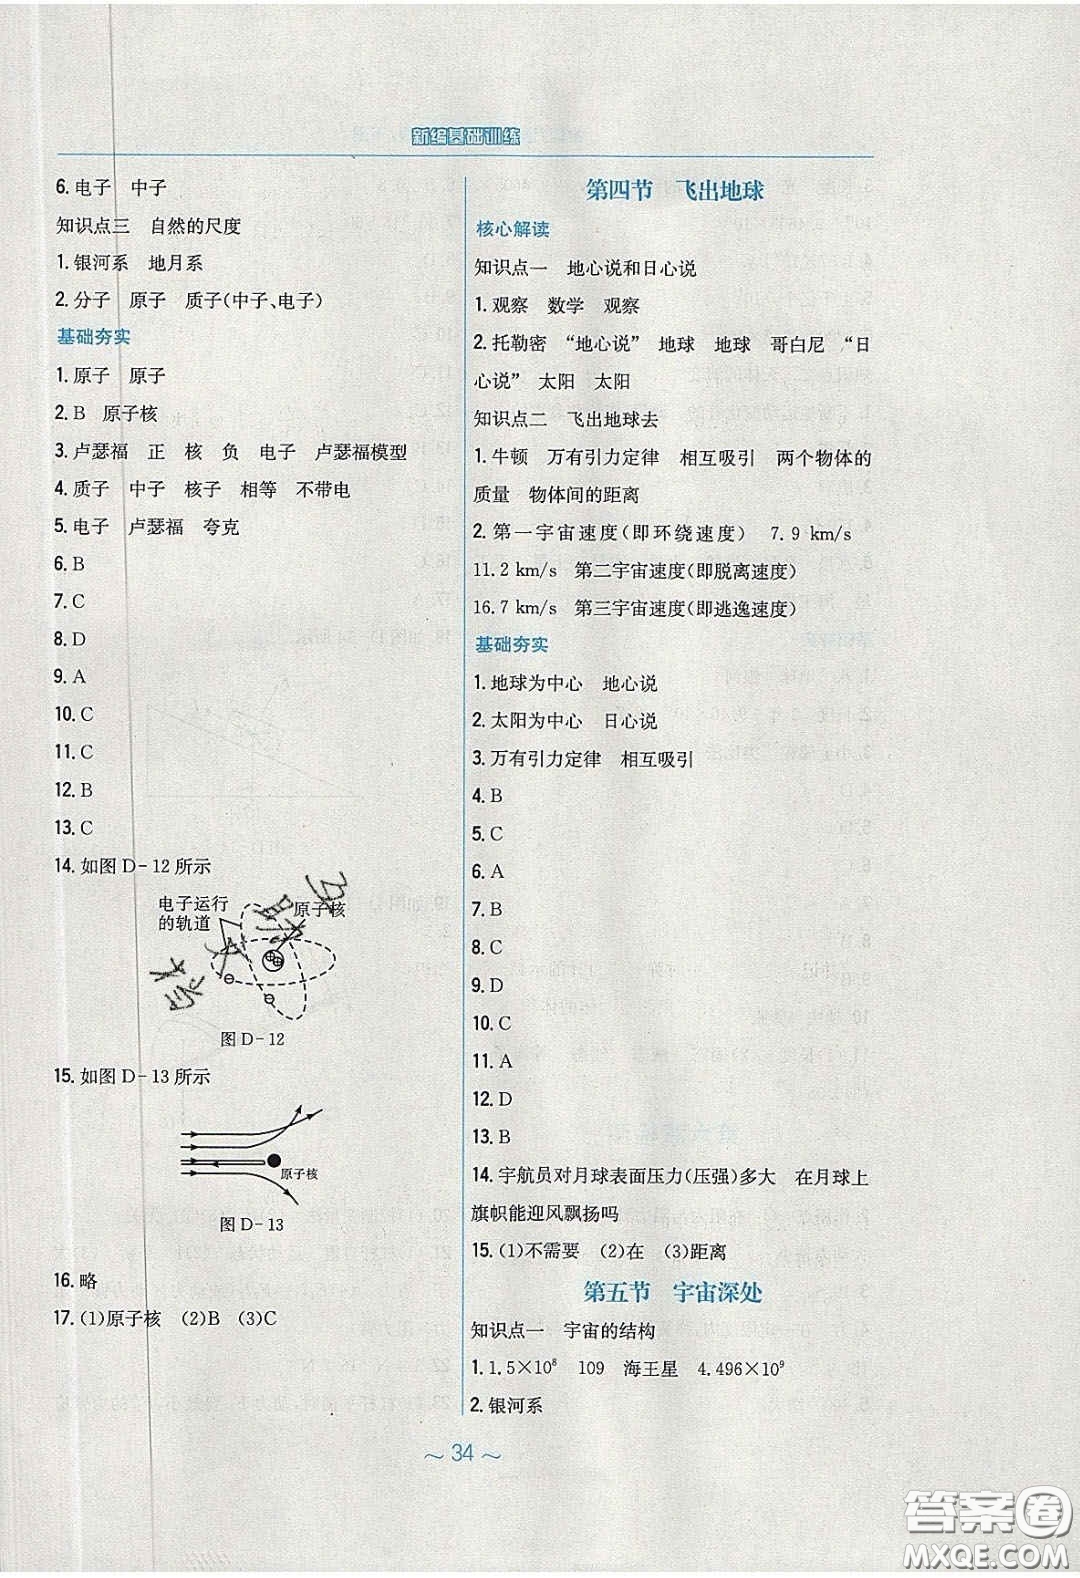 新编基础训练
6. 电子 中子
知识点三 自然的尺度
1. 银河系 地月系
2. 分子 原子 质子(中子、电子)
基础夯实
1. 原子 原子
2. B 原子核
3. 卢瑟福 正 核 负 电子 卢瑟福模型
4. 质子 中子 核子 相等 不带电
5. 电子 卢瑟福 夸克
6. B
7. C
8. D
9. A
10. C
11. C
12. B
13. C
14. 如图 D-12 所示
电子运行
的轨道
原子核
图 D-12
15. 如图 D-13 所示
原子核
图 D-13
16. 略
17. (1)原子核 (2)B (3)C
第四节 飞出地球
核心解读
知识点一 地心说和日心说
1. 观察 数学 观察
2. 托勒密 “地心说” 地球 地球 哥白尼 “日
心说” 太阳 太阳
知识点二 飞出地球去
1. 牛顿 万有引力定律 相互吸引 两个物体的
质量 物体间的距离
2. 第一宇宙速度(即环绕速度) 7.9 km/s
11.2 km/s 第二宇宙速度(即脱离速度)
16.7 km/s 第三宇宙速度(即逃逸速度)
基础夯实
1. 地球为中心 地心说
2. 太阳为中心 日心说
3. 万有引力定律 相互吸引
4. B
5. C
6. A
7. B
8. C
9. D
10. C
11. A
12. D
13. B
14. 宇航员对月球表面压力(压强)多大 在月球上
旗帜能迎风飘扬吗
15. (1)不需要 (2)在 (3)距离
第五节 宇宙深处
知识点一 宇宙的结构
1. 1.5×10⁸ 109 海王星 4.496×10⁹
2. 银河系
～ 34 ～
答案圈
MXQE.COM